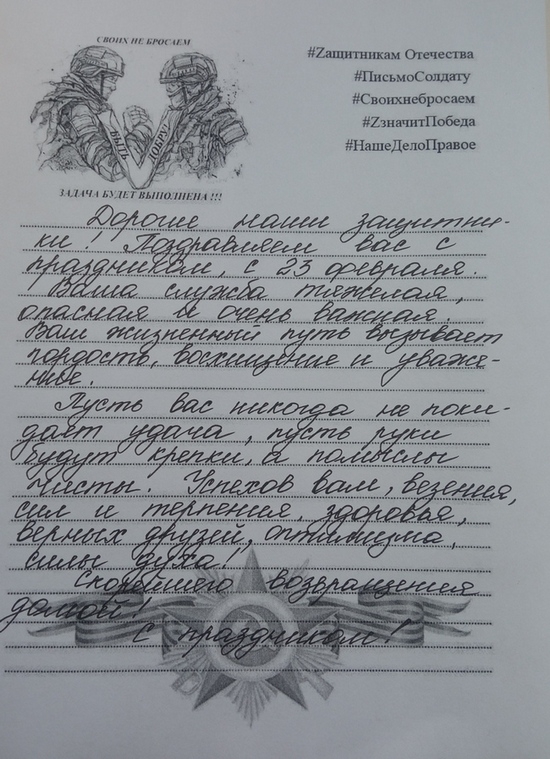 СВОИХ НЕ БРОСАЕМ
БЫТЬ
ДОБРУ
ЗАДАЧА БУДЕТ ВЫПОЛНЕНА !!!
#Zащитникам Отечества
#ПисьмоСолдату
#Своихнебросаем
#ZначитПобеда
#НашеДелоПравое
Дорогие наши защитни-
ки! Поздравляем вас с
праздником, с 23 февраля.
Ваша служба тяжелая,
опасная и очень важная.
Ваш жизненный путь вызывает
гордость, восхищение и уваже-
ние.
Пусть вас никогда не поки-
дает удача, пусть руки
будут крепки, а помыслы
чисты. Успехов вам, везения,
сил и терпения, здоровья,
верных друзей, оптимизма,
силы духа!
Скорейшего возвращения
домой!
С праздником!